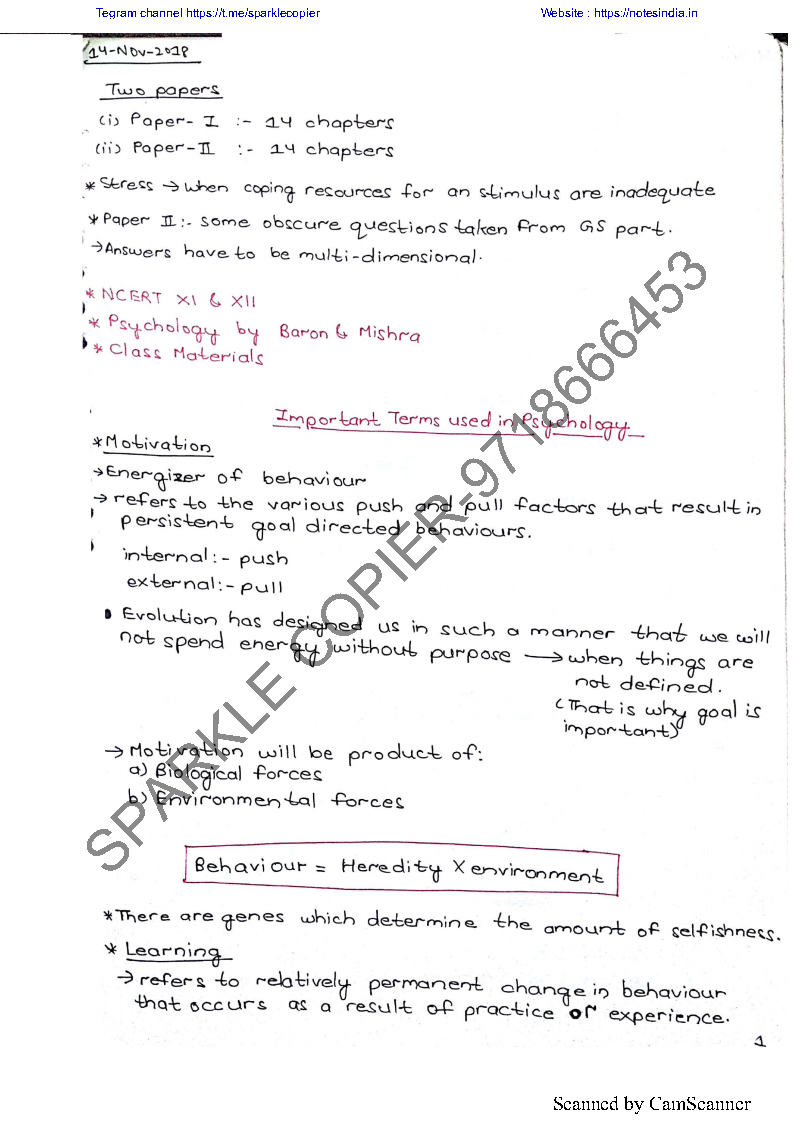 Tegram channel https://t.me/sparklecopier
Website : https://notesindia.in
14-Nov-2018
Two papers
(i) Paper- I :- 14 chapters
(ii) Paper-II :- 14 chapters
* Stress → when coping resources for an stimulus are inadequate
* Paper II:- some obscure questions taken from GS part.
→ Answers have to be multi-dimensional.
* NCERT XI & XII
* Psychology by Baron & Mishra
* Class Materials
Important Terms used in Psychology
* Motivation
→ Energizer of behaviour
→ refers to the various push and pull factors that result in
persistent goal directed behaviours.
internal:- push
external:- pull
• Evolution has designed us in such a manner that we will
not spend energy without purpose → when things are
not defined.
(That is why goal is
important)
→ Motivation will be product of:
a) Biological forces
b) Environmental forces
Behaviour = Heredity X environment
* There are genes which determine the amount of selfishness.
* Learning
→ refers to relatively permanent change in behaviour
that occurs as a result of practice or experience.
1
SPARKLE COPIER-9718666453
Scanned by CamScanner